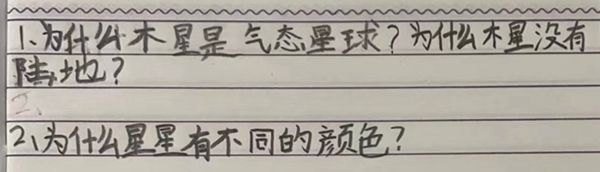 1、为什么木星是气态星球？为什么木星没有
陆地？
2、
2、为什么星星有不同的颜色？